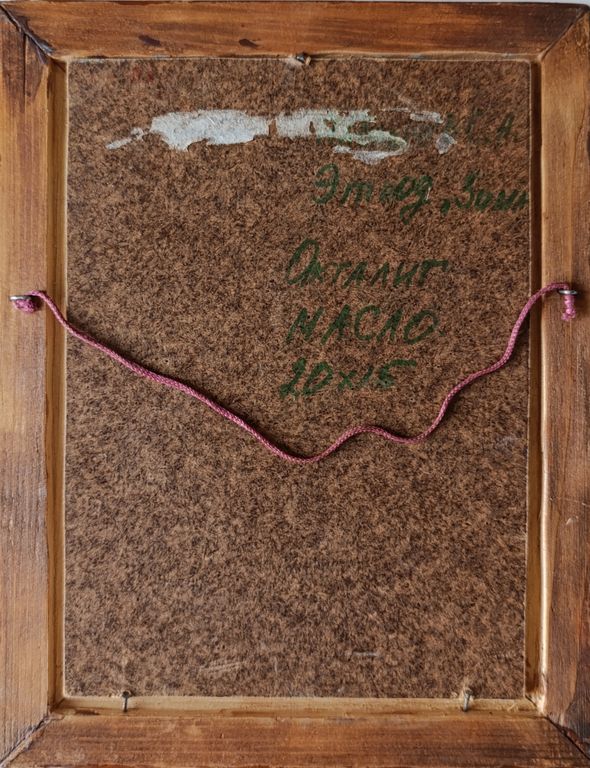 Этюд „Зим
Оргалит
МАСЛО
20х15